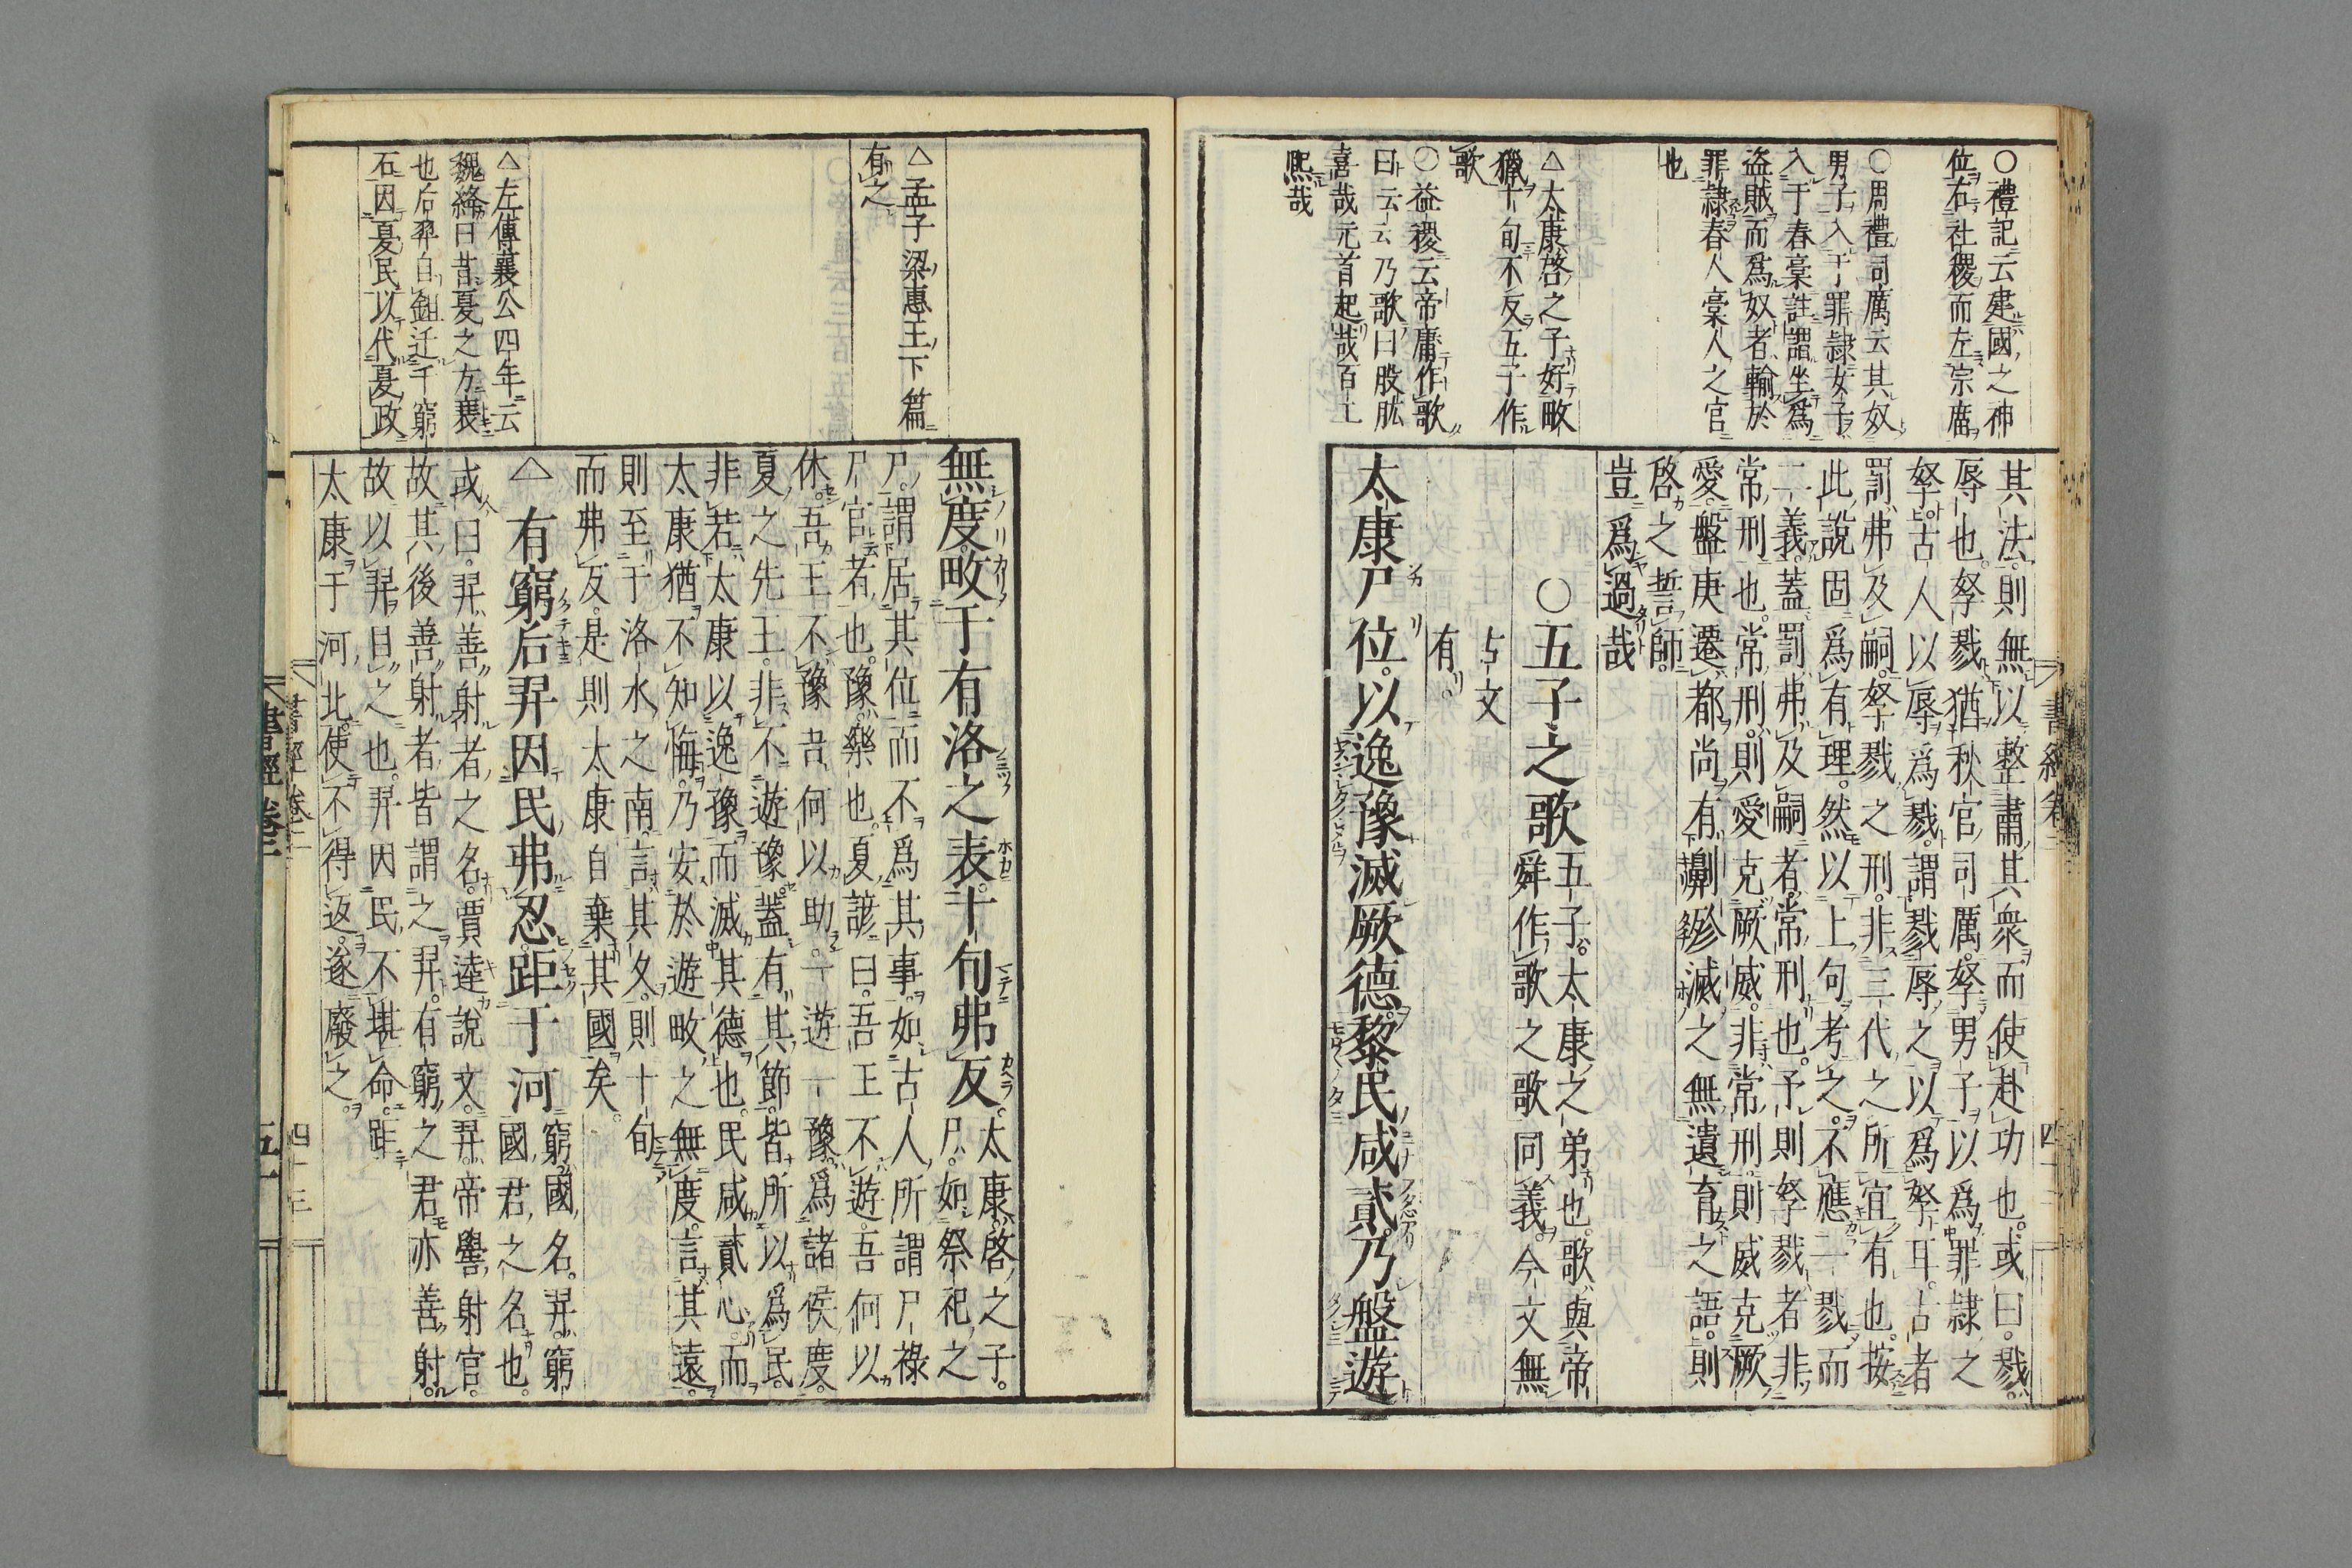 ○禮記云建國之神
位右社稷而左宗廟
○周禮司厲云其奴
男子入于罪隸女子
入于舂稾註謂坐爲
盜賊而爲奴者輸於
罪隸舂人稾人之官
也
△太康啓之子好畋
獵十旬不反五子作
歌
○益稷云帝庸作歌
曰云云乃歌曰股肱
喜哉元首起哉百工
熙哉
其法則無以整肅其衆而使赴功也或曰戮
辱也孥戮猶秋官司厲孥男子以爲罪隸之
孥古人以辱爲戮謂戮辱之以爲孥耳古者
罰弗及嗣孥戮之刑非三代之所宜有也按
此說固爲有理然以上句考之不應一戮而
二義蓋罰弗及嗣者常刑也予則孥戮者非
常刑也常刑則愛克厥威非常刑則威克厥
愛盤庚遷都尚有劓殄滅之無遺育之語則
啓之誓師
豈爲過哉
○五子之歌
五子太康之弟也歌與帝
舜作歌之歌同義今文無
古文
有
太康尸位以逸豫滅厥德黎民咸貳乃盤遊
書經卷二
△孟子梁惠王下篇
有之
△左傳襄公四年云
魏絳曰昔夏之方衰
也后羿自鉏迁于窮
石因夏民以代夏政
無度畋于有洛之表十旬弗反
太康啓之子
尸如祭祀之
尸謂居其位而不爲其事如古人所謂尸祿
尸官者也豫樂也夏諺曰吾王不遊吾何以
休吾王不豫吾何以助一遊一豫爲諸侯度
夏之先王非不遊豫蓋有其節皆所以爲民
非若太康以逸豫而滅其德也民咸貳心而
太康猶不知悔乃安於遊畋之無度言其遠
則至于洛水之南言其久則十旬
而弗反是則太康自棄其國矣
△有窮后羿因民弗忍距于河
窮國名羿窮
國君之名也
或曰羿善射者之名賈逵說文羿帝嚳射官
故其後善射者皆謂之羿有窮之君亦善射
故以羿目之也羿因民不堪命距
太康于河北使不得返遂廢之
書經卷二
四十三